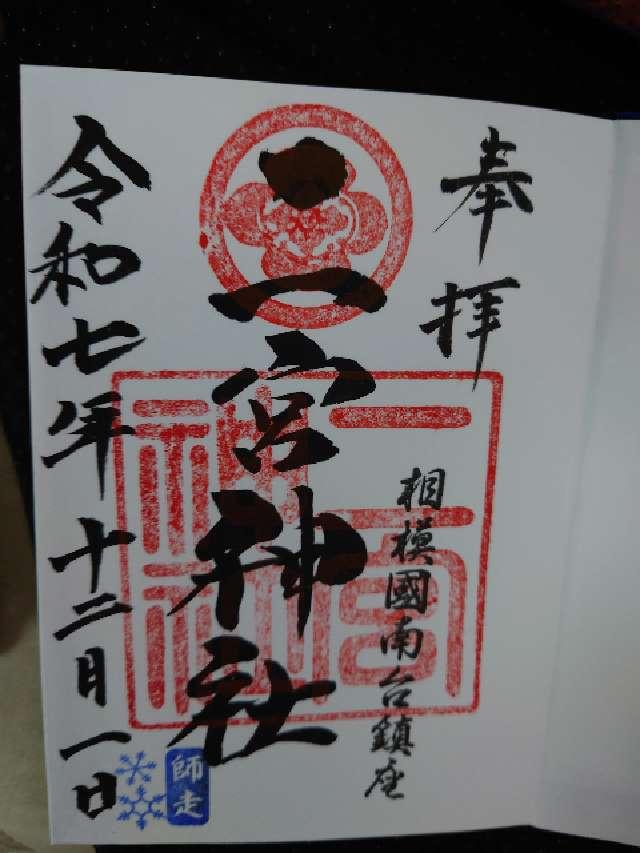 奉拝
相模國南台鎮座
二宮神社
二宮神社
令和七年十二月一日
師走